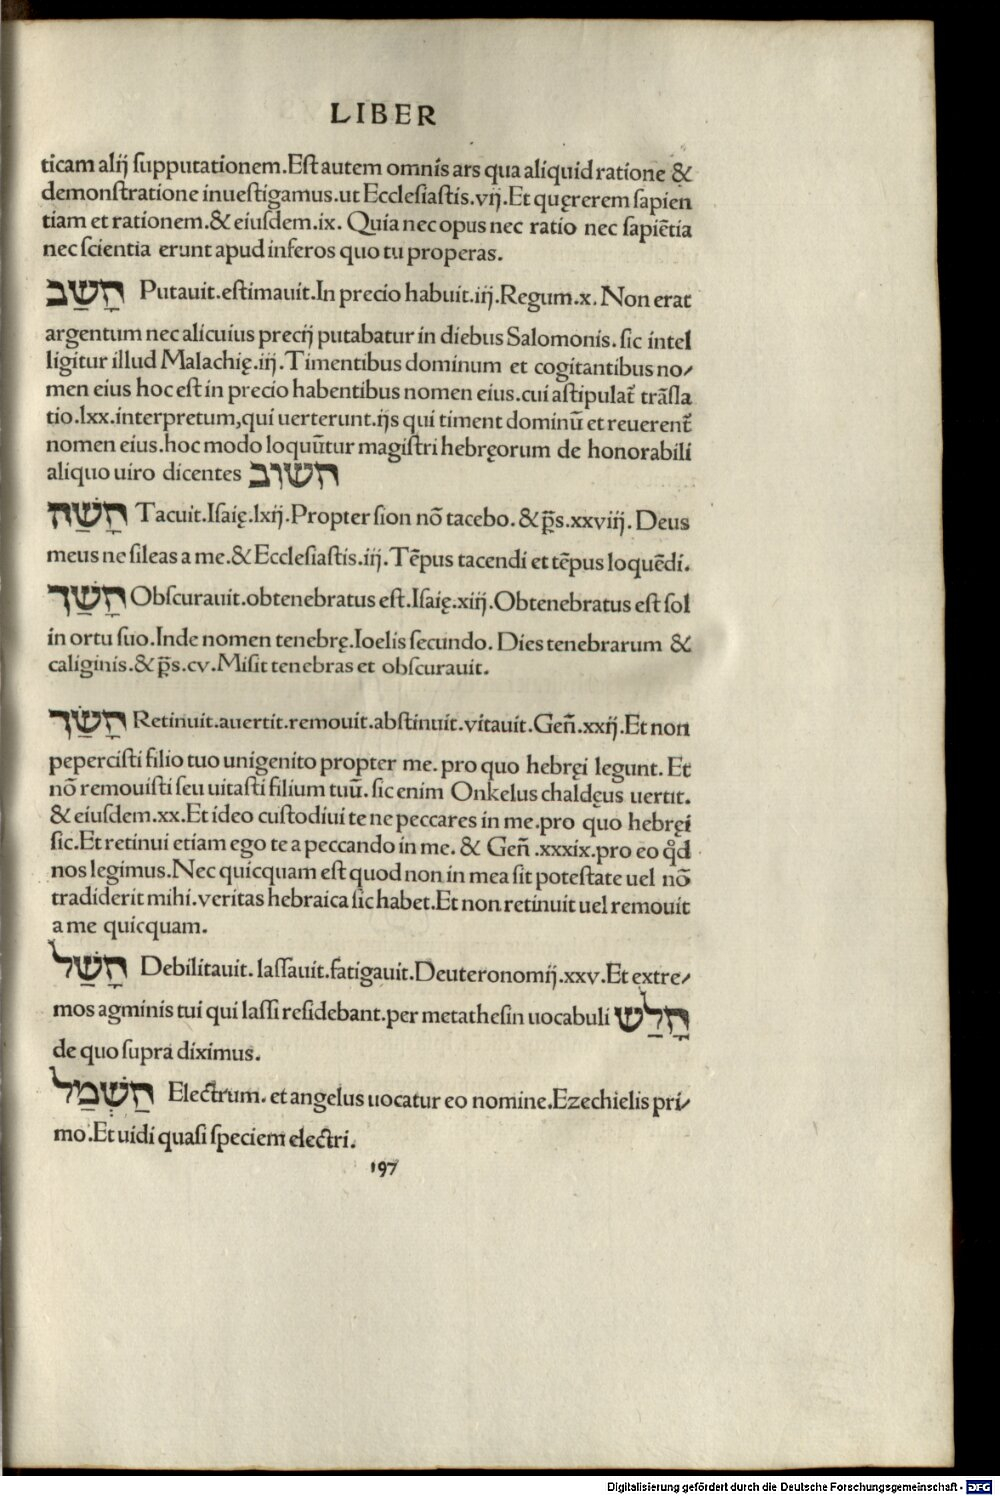 LIBER
ticam alij ſupputationem.Eſt autem omnis ars qua aliquid ratione &
demonſtratione inueſtigamus.ut Eccleſiaſtis.vij.Et quęrerem ſapien
tiam et rationem.& eiuſdem.ix. Quia nec opus nec ratio nec ſapiẽtia
nec ſcientia erunt apud inferos quo tu properas.
חָשַׁב Putauit.eſtimauit.In precio habuit.iij.Regum.x. Non erat
argentum nec alicuius precij putabatur in diebus Salomonis. ſic intel
ligitur illud Malachię.iij.Timentibus dominum et cogitantibus no⸗
men eius hoc eſt in precio habentibus nomen eius.cui aſtipulat᷑ trãſla
tio.lxx.interpretum,qui uerterunt.ijs qui timent dominũ et reuerent᷑
nomen eius.hoc modo loquũtur magiſtri hebręorum de honorabili
aliquo uiro dicentes חשוב
חָשַׁה Tacuit.Iſaię.lxij.Propter ſion nõ tacebo. & p̃s.xxviij. Deus
meus ne ſileas a me.& Eccleſiaſtis.iij. Tẽpus tacendi et tẽpus loquẽdi.
חָשַׁך Obſcurauit.obtenebratus eſt.Iſaię.xiij.Obtenebratus eſt ſol
in ortu ſuo.Inde nomen tenebrę.Ioelis ſecundo. Dies tenebrarum &
caliginis.& p̃s.cv.Miſit tenebras et obſcurauit.
חָשַׂך Retinuit.auertit.remouit.abſtinuit.vitauit.Geñ.xxij.Et non
peperciſti filio tuo unigenito propter me. pro quo hebręi legunt. Et
nõ remouiſti ſeu uitaſti filium tuũ. ſic enim Onkelus chaldęus uertit.
& eiuſdem.xx.Et ideo cuſtodiui te ne peccares in me.pro quo hebręi
ſic.Et retinui etiam ego te a peccando in me. & Geñ.xxxix.pro eo qd̃
nos legimus.Nec quicquam eſt quod non in mea ſit poteſtate uel nõ
tradiderit mihi.veritas hebraica ſic habet.Et non retinuit uel remouit
a me quicquam.
חָשַׁל Debilitauit. laſſauit.fatigauit.Deuteronomij.xxv.Et extre⸗
mos agminis tui qui laſſi reſidebant.per metatheſin uocabuli חָלַשׁ
de quo ſupra diximus.
חַשְׁמַל Electrum. et angelus uocatur eo nomine.Ezechielis pri⸗
mo.Et uidi quaſi ſpeciem electri.
197
Digitalisierung gefördert durch die Deutsche Forschungsgemeinschaft - DFG